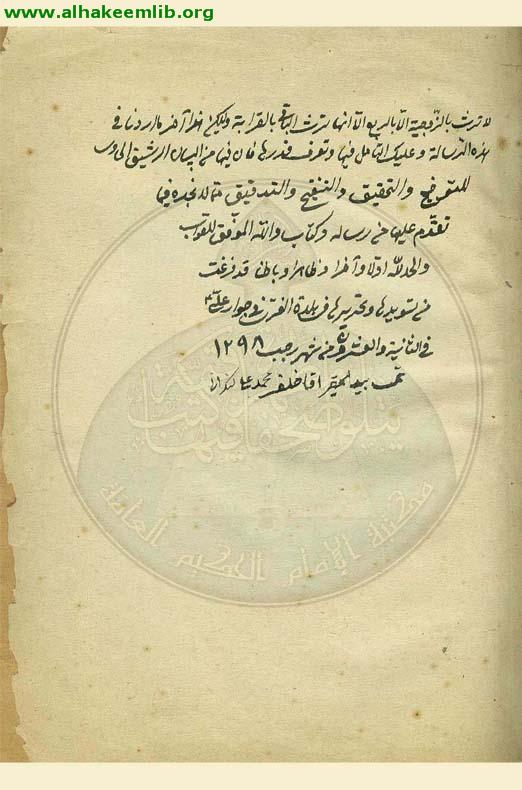 www.alhakeemlib.org
لا ترث بالزوجية الا بالربع الا انها ترث الباقي بالقرابة وليكن هذا آخر ما اردنا في
هذه الرسالة وعليك التأمل فيها وتعرف قدرها فان فيها من البيان الرشيق
والتحقيق والتنقيح والتدقيق ما لم تجده فيما
تقدم عليها من رسالة وكتاب والله الموفق للصواب
والحمد لله اولا وآخرا وظاهرا وباطنا قد فرغت
من تسويدها وتحريرها في بلدة الغري في جوار علي ع
في الثانية والعشرون من شهر رجب ١٢٩٨
تمت بيد الحقير محمد
مكتبة الإمام الحكيم العامة